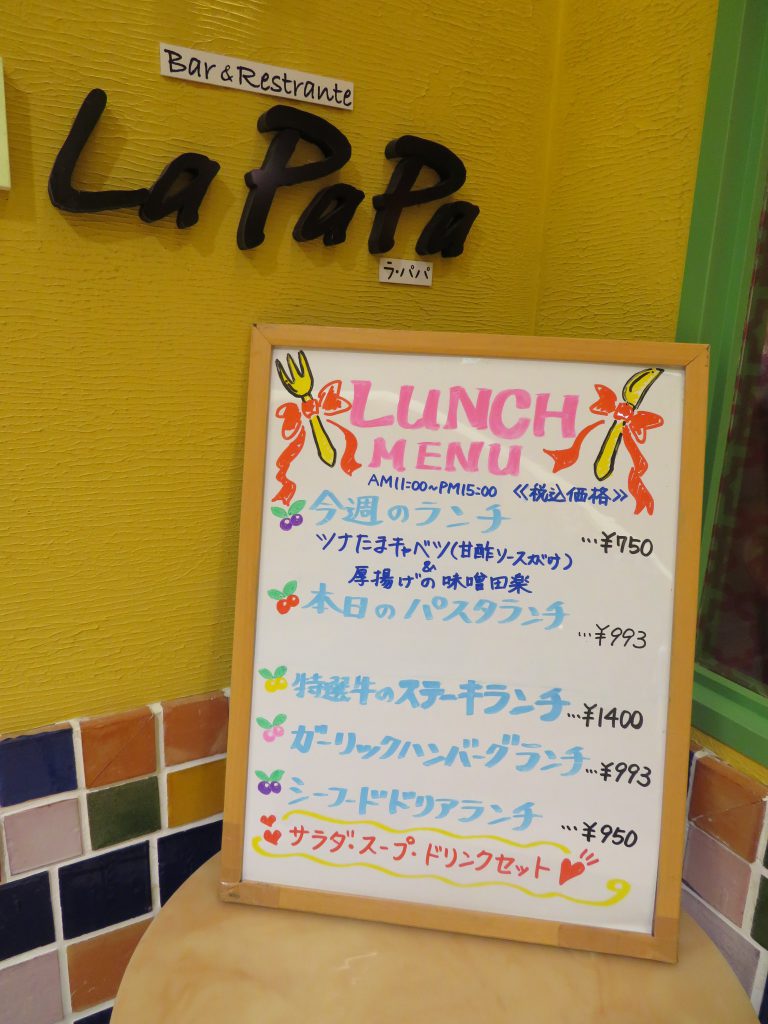 Bar & Restrante
La PaPa
ラ・パパ
LUNCH
MENU
AM11:00~PM15:00 《税込価格》
今週のランチ
…¥750
ツナたまキャベツ(甘酢ソースがけ)
&
厚揚げの味噌田楽
本日のパスタランチ
…¥993
特選牛のステーキランチ…¥1400
ガーリックハンバーグランチ…¥993
シーフードドリアランチ…¥950
サラダ・スープ・ドリンクセット